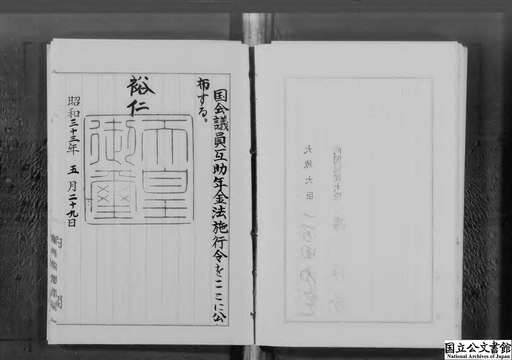 国会議員互助年金法施行令をここに公
布する。
裕仁
天皇
御璽
昭和三十三年 五月二十九日
大蔵大臣
国立公文書館
National Archives of Japan